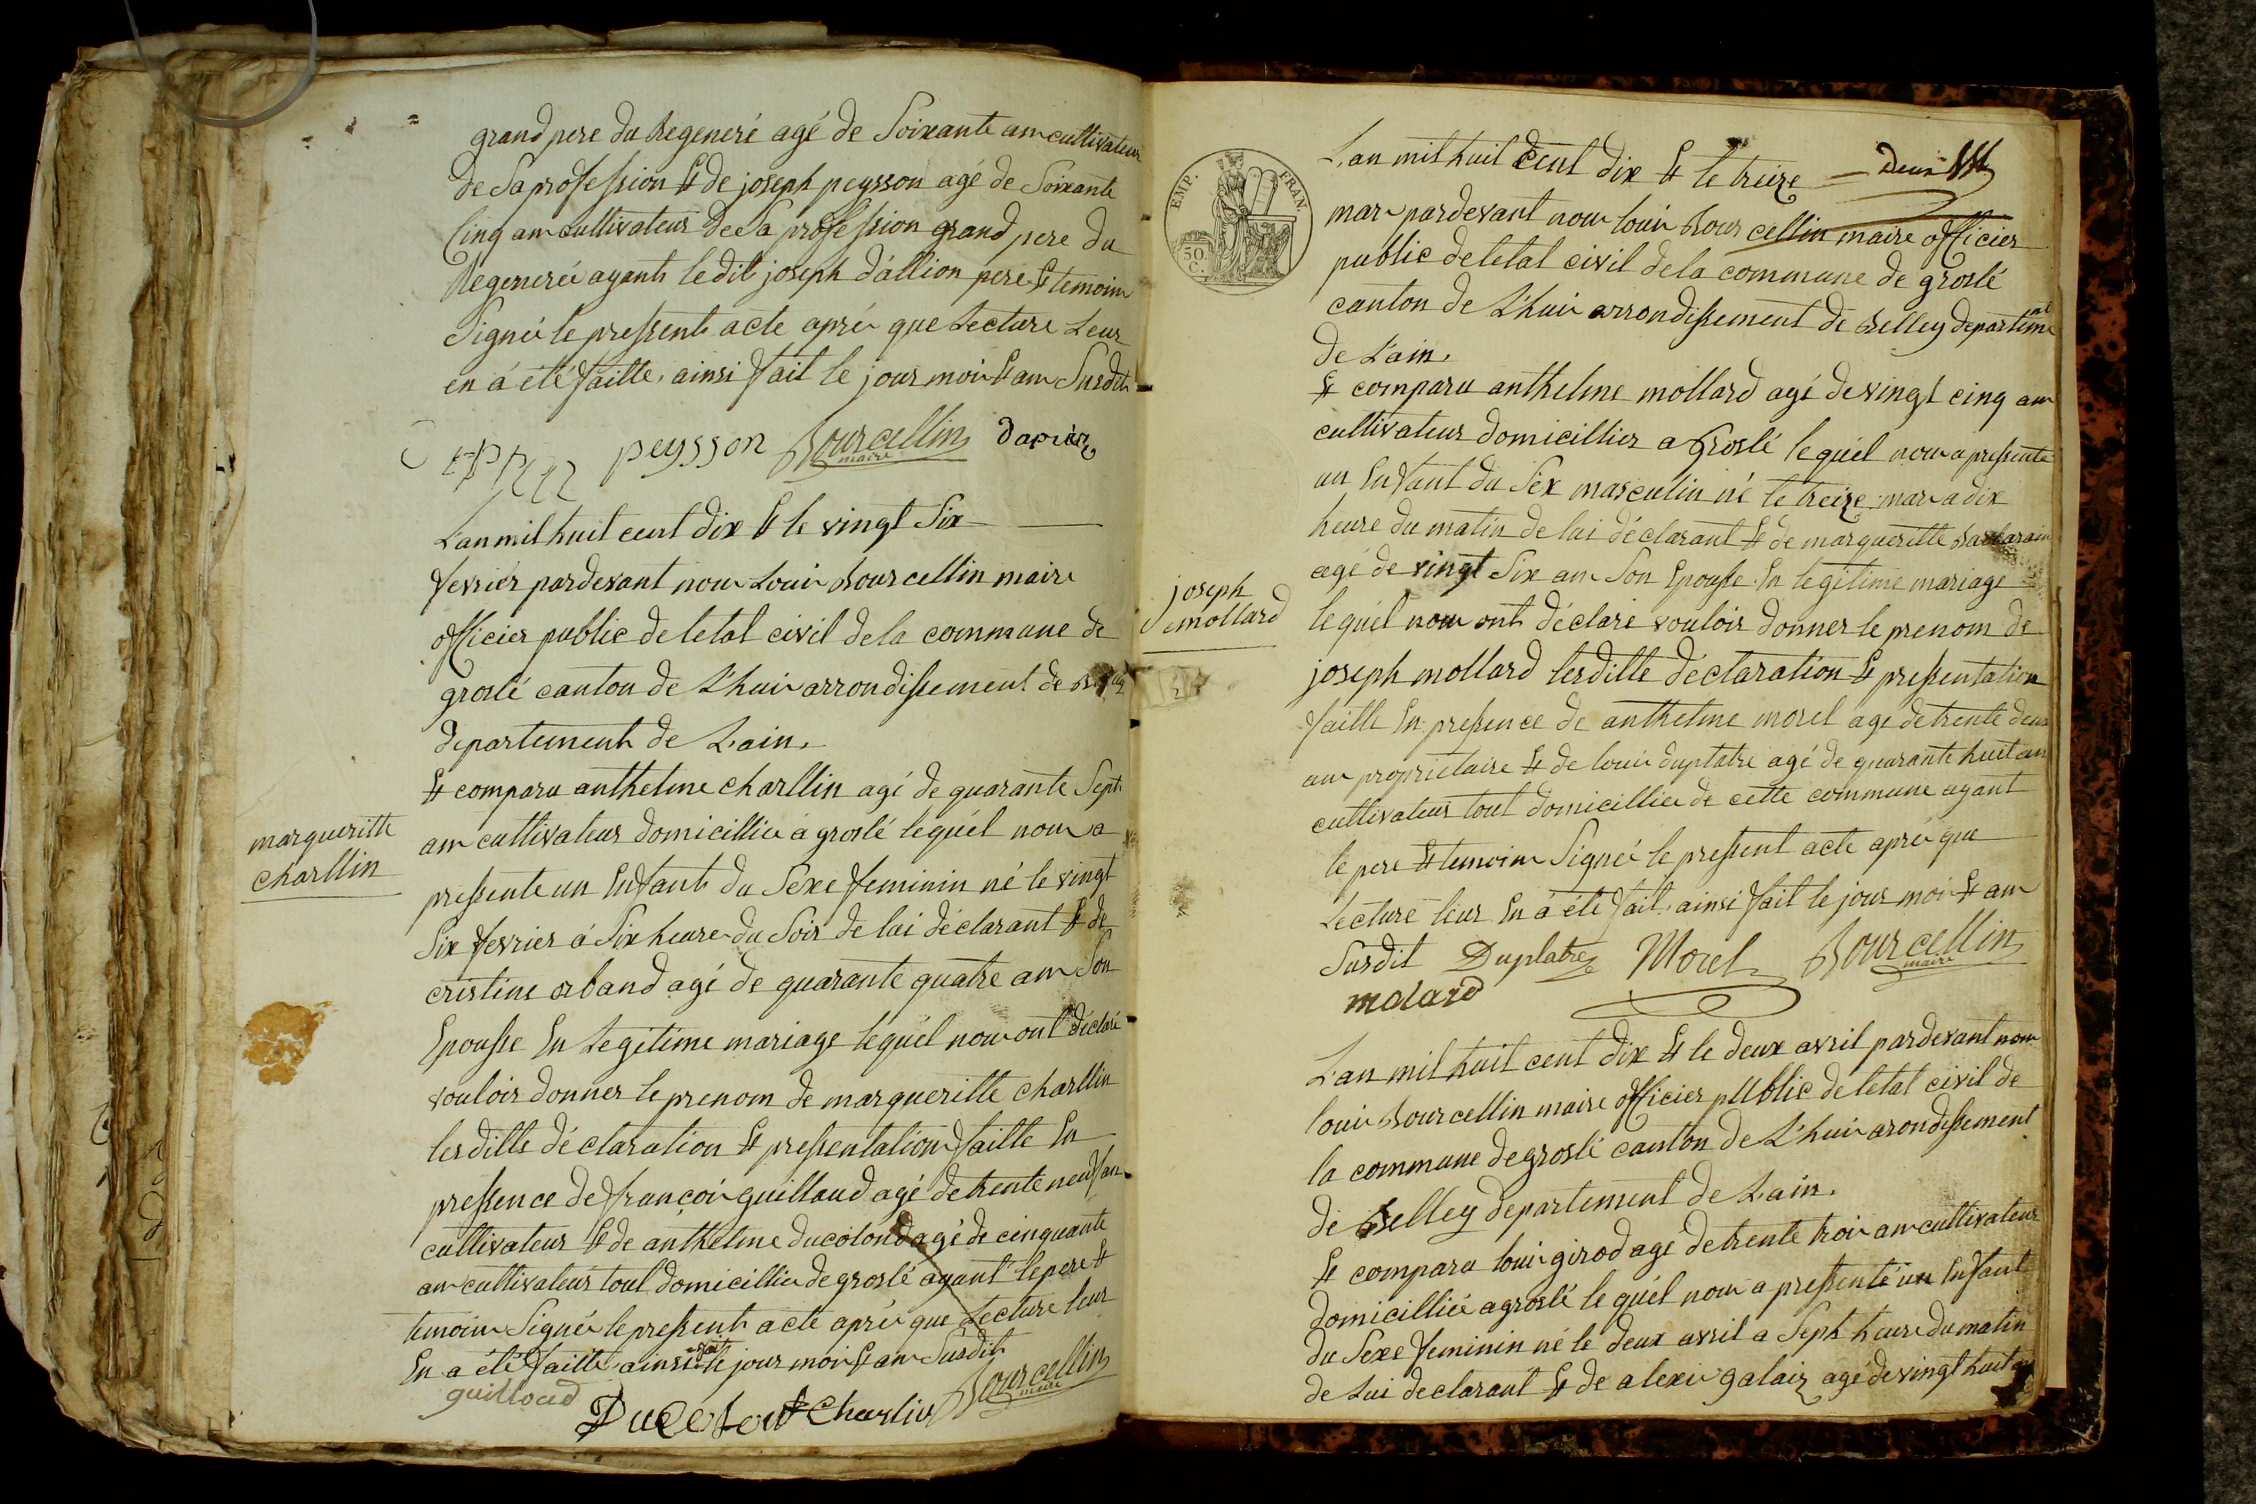 grand pere du Regeneré agé de Soixante ans cultivateur
de Sa profession & de joseph peysson agé de Soixante
Cinq ans cultivateur de Sa profession grand pere du
Regeneré ayants le dit joseph d'allion pere & temoins
Signés le pressent acte aprés que Lecture Leur
en á été faitte, ainsi fait le jour mois & ans Susdits
peysson Bourcellin maire
L'an mil huit cent dix & le vingt Six
fevrier pardevant nous Louis Bourcellin maire
officier public de letat civil de la commune de
groslé canton de L'huis arrondissement de
departement de L'ain.
& comparu anthelme charllin agé de quarante Sept
ans cultivateur domicilliés á groslé lequél nous a
pressente un Enfant du Sexe feminin né le vingt
Six fevrier á Six heures du Soir de lui déclarant & de
cristine orband agé de quarante quatre ans Son
Epousse En Legitime mariage lequél nous ont déclaré
vouloir donner le prenom de margueritte charllin
lesditte déclaration & pressentation faitte En
pressence de françois guillaud agé de trente neuf ans
cultivateur & de anthelme ducolond agé de cinquante
ans cultivateur tout domicilliés de groslé ayant le pere &
temoins Signés le pressent acte aprés que Lecture leur
En a été faitte, ainsi fait le jour mois & ans Susdit
guilloud
charlin Bourcellin maire
margueritte
charllin
EMP. FRAN.
50. C.
L'an mil huit cent dix & le treize Deux
mars pardevant nous louis Bourcellin maire officier
public de letat civil de la commune de groslé
canton de L'huis arrondissement de Belley departeme nt
de L'ain.
& comparu anthelme mollard agé de vingt cinq ans
cultivateur domicillier a groslé lequél nous a pressente
un Enfant du Sex masculin né le treize mars a dix
heure du matin de lui déclarant & de margueritte
agé de vingt Six ans Son Epousse En legitime mariage
lequél nous ont déclaré vouloir donner le prenom de
joseph mollard lesditte déclaration & pressentation
faitte En pressence de anthelme morel agé de trente deux
ans propriétaire & de louis duplatre agé de quarante huit ans
cultivateur tout domicilliés de cette commune ayant
le pere & temoins Signés le pressent acte aprés que
Lecture leur En á été fait, ainsi fait le jour mois & ans
Susdit Duplatre Morel Bourcellin maire
molard
joseph
mollard
L'an mil huit cent dix & le deux avril pardevant nous
louis Bourcellin maire officier public de letat civil de
la commune de groslé canton de L'huis arondissement
de Belley departement de L'ain.
& comparu louis girod agé de trente trois ans cultivateur
domicilliés a groslé lequél nous a pressenté un Enfant
du Sexe feminin né le deux avril a Sept heure du matin
de Lui declarant & de alexis galaiz agé de vingt huit